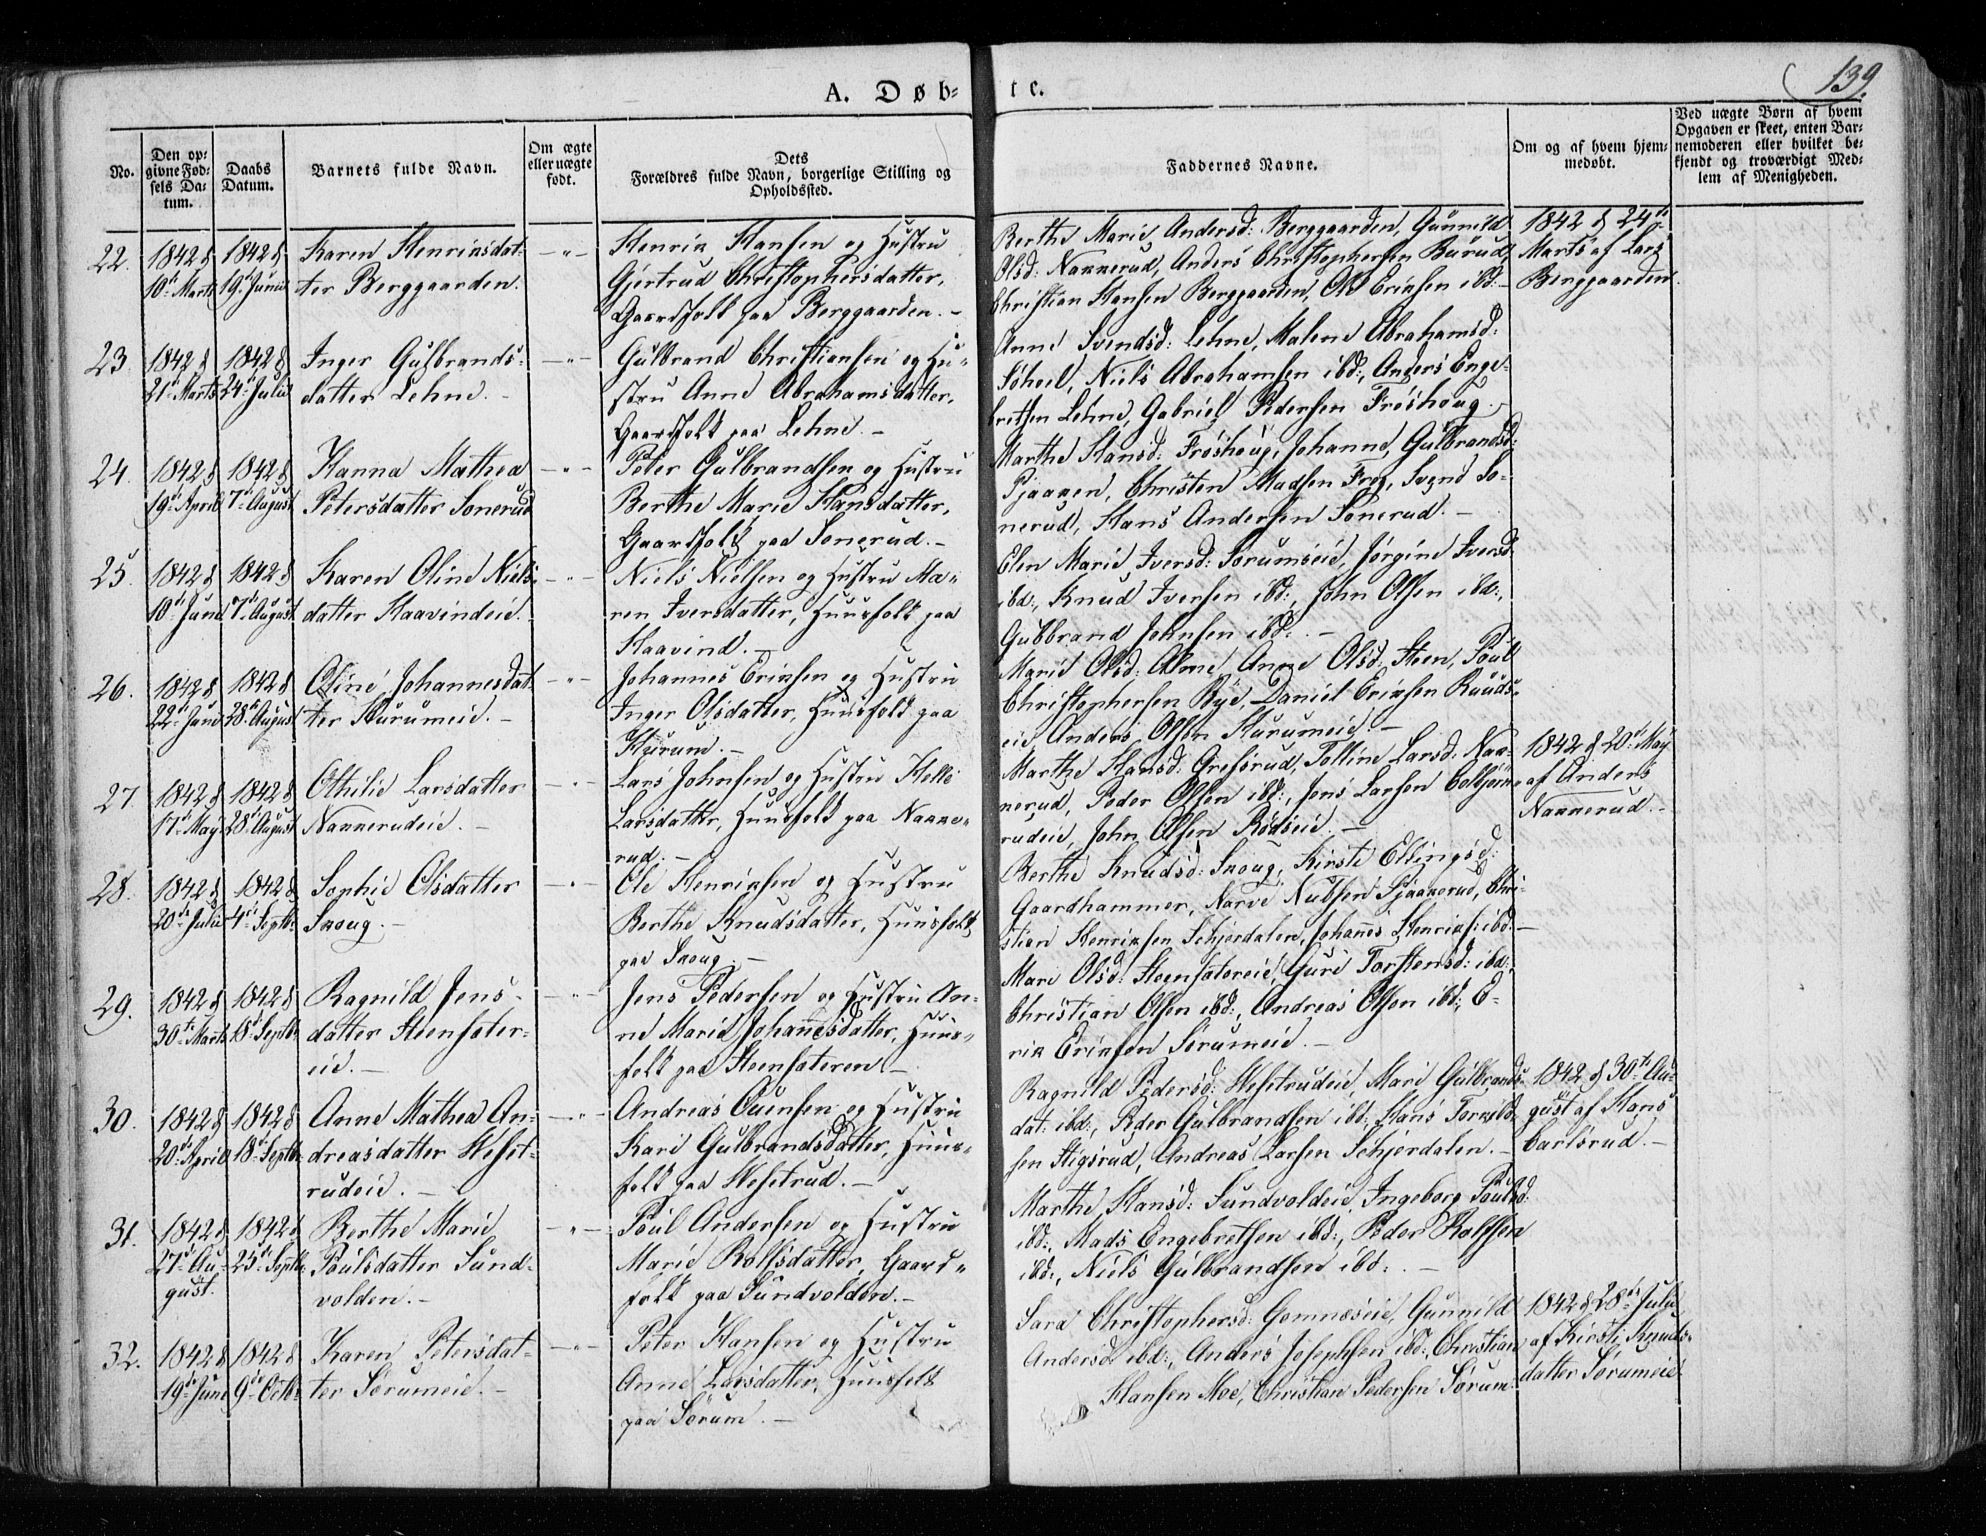 139.
A. Døb- te.
No.
Den op-
givne Fød-
sels Da-
tum.
Daabs
Datum.
Barnets fulde Navn.
Om ægte
eller uægte
født.
Dets
Forældres fulde Navn, borgerlige Stilling og
Opholdssted.
Faddernes Navne.
Om og af hvem hjem-
medøbt.
Ved uægte Børn af hvem
Opgaven er skeet, enten Bar-
nemoderen eller hvilket be-
kjendt og troværdigt Med-
lem af Menigheden.
22. 1842 d 10de Marts
1842 d 19de Junii
Karen Henriksdat-
ter Berggaarden.
— " —
Henrik Hansen og Hustru
Gjertrud Christophersdatter,
Gaardfolk paa Berggaarden. —
Berthe Marie Andersd: Berggaarden, Gunnild
Olsd: Nakkerud, Anders Christophersen Burud,
Christian Hansen Berggaarden, Ole Eriksen ibd: —
1842 d 24de
Marts af Lars
Berggaarden.
23. 1842 d 21de Marts
1842 d 24de Julii
Inger Gulbrands-
datter Lehne. —
— " —
Gulbrand Christiansen og Hu-
stru Anne Abrahamsdatter,
Gaardfolk paa Lehne. —
Anne Svendsd: Lehne, Malene Abrahamsd:
Søhoel, Niels Abrahamsen ibd:, Anders Enge-
bretsen Lehne, Gabriel Pedersen Frøshoug. —
24. 1842 d 19de April
1842 d 7de August
Hanna Mathea
Petersdatter Sonerud
— " —
Peter Gulbrandsen og Hustru
Berthe Marie Hansdatter,
Gaardfolk paa Sonerud. —
Marthe Hansd: Frøshoug, Johanne Gulbrandsd:
Pjaaken, Christen Madsen Frog, Svend So-
nerud, Hans Andersen Sonerud. —
25. 1842 d 10de Juni
1842 d 7de August
Karen Oline Niels-
datter Haavindeie.
— " —
Niels Nielsen og Hustru Ma-
ren Iversdatter, Huusfolk paa
Haavind. —
Elen Marie Iversd: Sørumseie, Jørgine Iversd
ibd:, Knud Iversen ibd:, John Olsen ibd:,
Gulbrand Johnsen ibd: —
26. 1842 d 22de Juni
1842 d 28de August
Oline Johannesdat-
ter Hurumeie. —
— " —
Johannes Eriksen og Hustru
Inger Olsdatter, Huusfolk paa
Hurum. —
Marie Olsd: Alme, Anne Olsd: Steen, Poul
Christophersen Bye, Daniel Eriksen Ruuds-
eie, Anders Olsen Hurumeie. —
27 1842 d 17de May
1842 d 28de August
Othilie Larsdatter
Nakkerudeie. —
— " —
Lars Johnsen og Hustru Helle
Larsdatter, Huusfolk paa Nakke-
rud. —
Marthe Hansd: Grefsrud, Tolline Larsd: Nak-
kerud, Peder Olsen ibd:, Jens Larsen
rudeie, John Olsen Rødseie. —
1842 d 20de May
af Anders
Nakkerud. —
28. 1842 d 20de Julii
1842 d 4de Septb:
Sophie Olsdatter
Skoug. —
— " —
Ole Henriksen og Hustru
Berthe Knudsdatter, Huusfolk
paa Skoug. —
Berthe Knudsd: Skoug, Kirsti Ellingsd:
Gaardhammer, Narve Nubsen Pjaakerud, Chri-
stian Henriksen Schjerdalen, Johannes Henriks: ibd: —
29. 1842 d 30te Marts
1842 d 18de Septb:
Ragnild Jens-
datter Steensæter-
eie. —
— " —
Jens Pedersen og Hustru An-
ne Marie Johannesdatter, Huus-
folk paa Steensæteren —
Mari Olsd: Steensætereie, Guri Torstensd: ibd:
Christian Olsen ibd:, Andreas Olsen ibd:, E-
rik Eriksen Sørumeie. —
30. 1842 d 20de April
1842 d 18de Septb:
Anne Mathea An-
dreasdatter Hefst-
rudeie. —
— " —
Andreas Evensen og Hustru
Kari Gulbrandsdatter, Huus-
folk paa Hefstrud. —
Ragnild Pedersd: Hefstrudeie, Mari Gulbrands-
dat: ibd:, Peder Gulbrandsen ibd:, Hans Torkild-
sen Stigsrud, Andreas Larsen Schjerdalen. —
1842 d 30te Au-
gust af Hans
Carlsrud. —
31. 1842 d 27de Au-
gust.
1842 d 25de Septb:
Berthe Marie
Poulsdatter Sund-
volden. —
— " —
Poul Andersen og Hustru
Marie Rolfsdatter, Gaard-
folk paa Sundvolden. —
Marthe Hansd: Sundvoldeie, Ingeborg Poulsd:
ibd:, Mads Engebretsen ibd:, Peder Rolfsen
ibd:, Niels Gulbrandsen ibd: —
32. 1842 d 19de Juni
1842 d 9de Octb:
Karen Petersdat-
ter Sørumeie. —
— " —
Peter Hansen og Hustru
Anne Larsdatter, Huusfolk
paa Sørum. —
Sara Christophersd: Gomnæseie, Gunnild
Andersd: ibd:, Anders Josephsen ibd:, Christian
Hansen Moe, Christian Pedersen Sørum.
1842 d 28de Julii
af Kirsti Knuds-
datter Sørumeie.